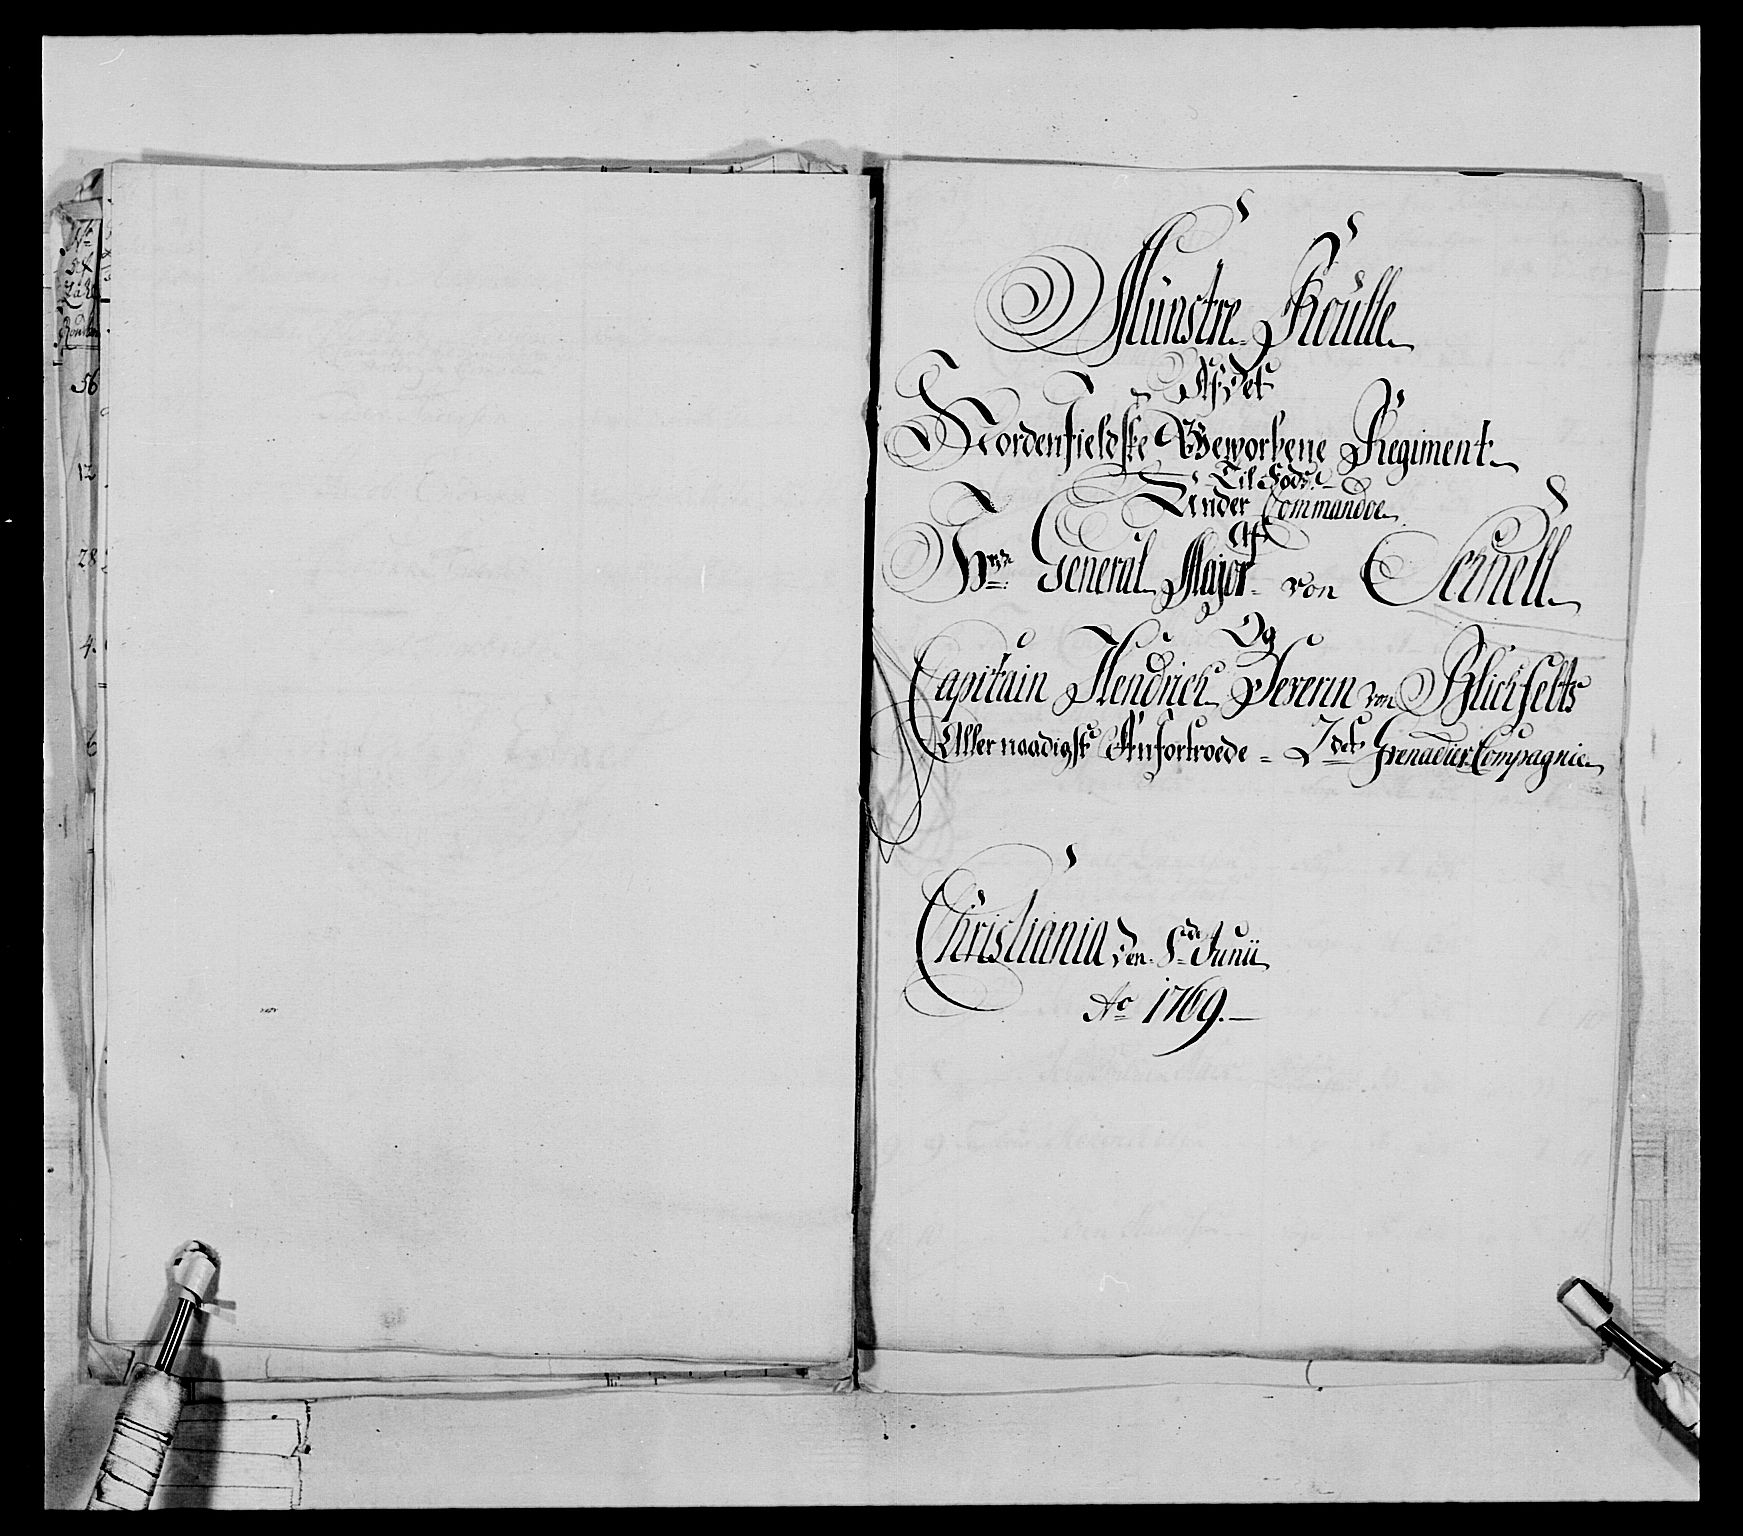 Nr
54
56
12
28
4.
6
Münstre-Roülle
Af det
Nordenfieldske Geworbene Regiment
Til Fods
Under Commandoe
Af
Hrr General Major von
Og
Capitain Hendrich Severin von Blichfeldts
Aller naadigst Anfortroede = 2det Grenadier Compagnie
Christiania den 8de Junii
Ao 1769.